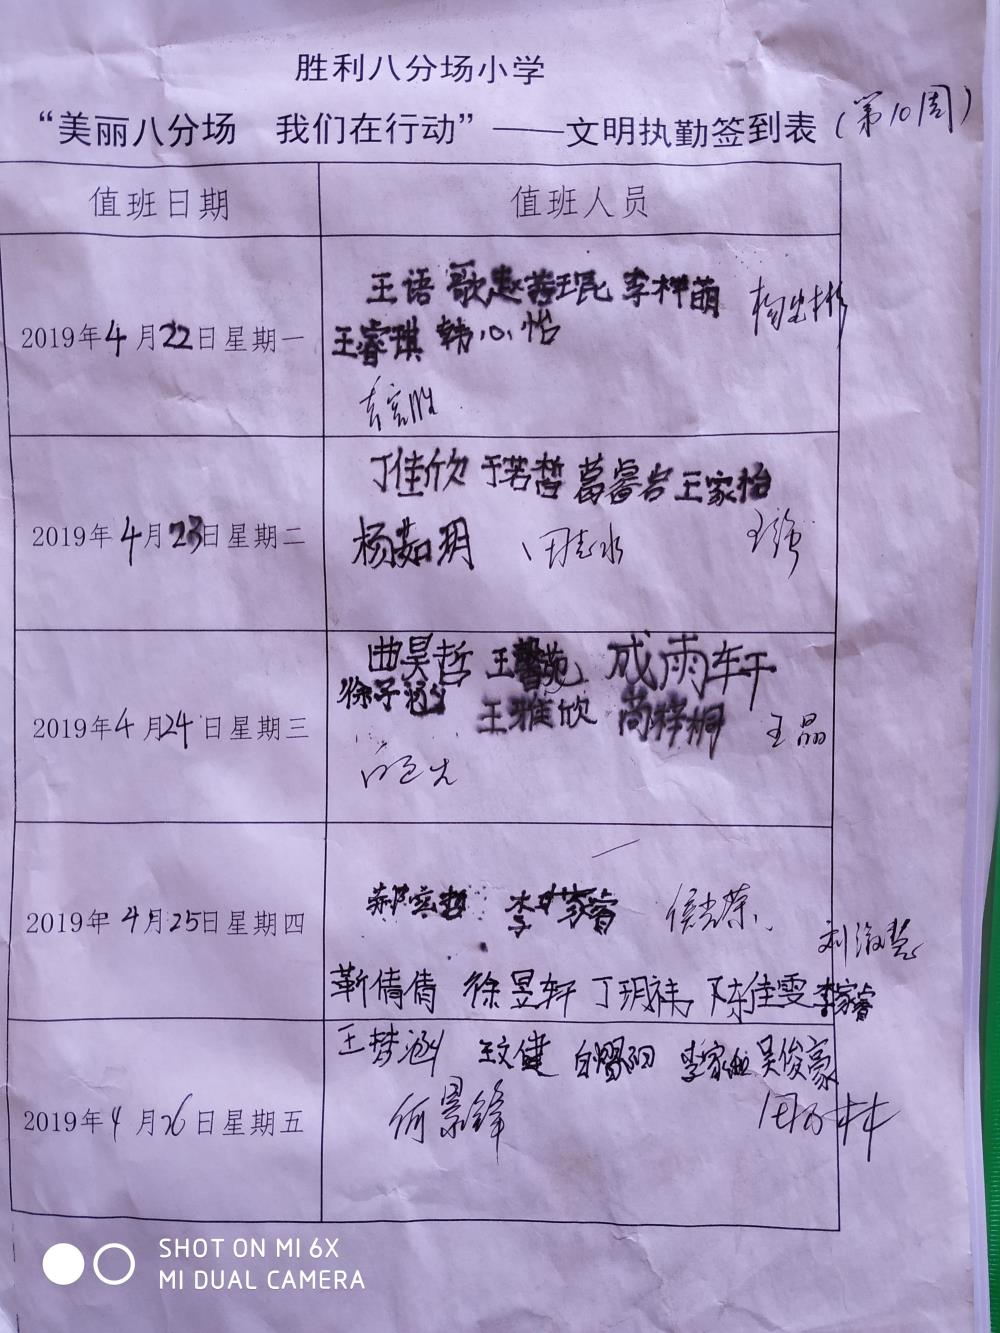 胜利八分场小学
“美丽八分场 我们在行动”——文明执勤签到表（第10周）
值班日期 值班人员
2019年4月22日星期一
王语歌 赵茜珉 李梓萌
王睿琪 韩心怡
2019年4月23日星期二
丁佳欣 于若哲 葛睿岩 王家怡
杨茹玥 田志水 王强
2019年4月24日星期三
曲昊哲 王馨苑 成雨轩
徐子涵 王雅欣 尚梓桐 王晶
2019年4月25日星期四
郝奕哲 李梦睿 侯光荣
刘淑慧
靳倩倩 徐昱轩 丁玥祎 陈佳雯 李家睿
2019年4月26日星期五
王梦涵 王文健 白熠阳 李家 吴俊豪
何景锋
SHOT ON MI 6X
MI DUAL CAMERA